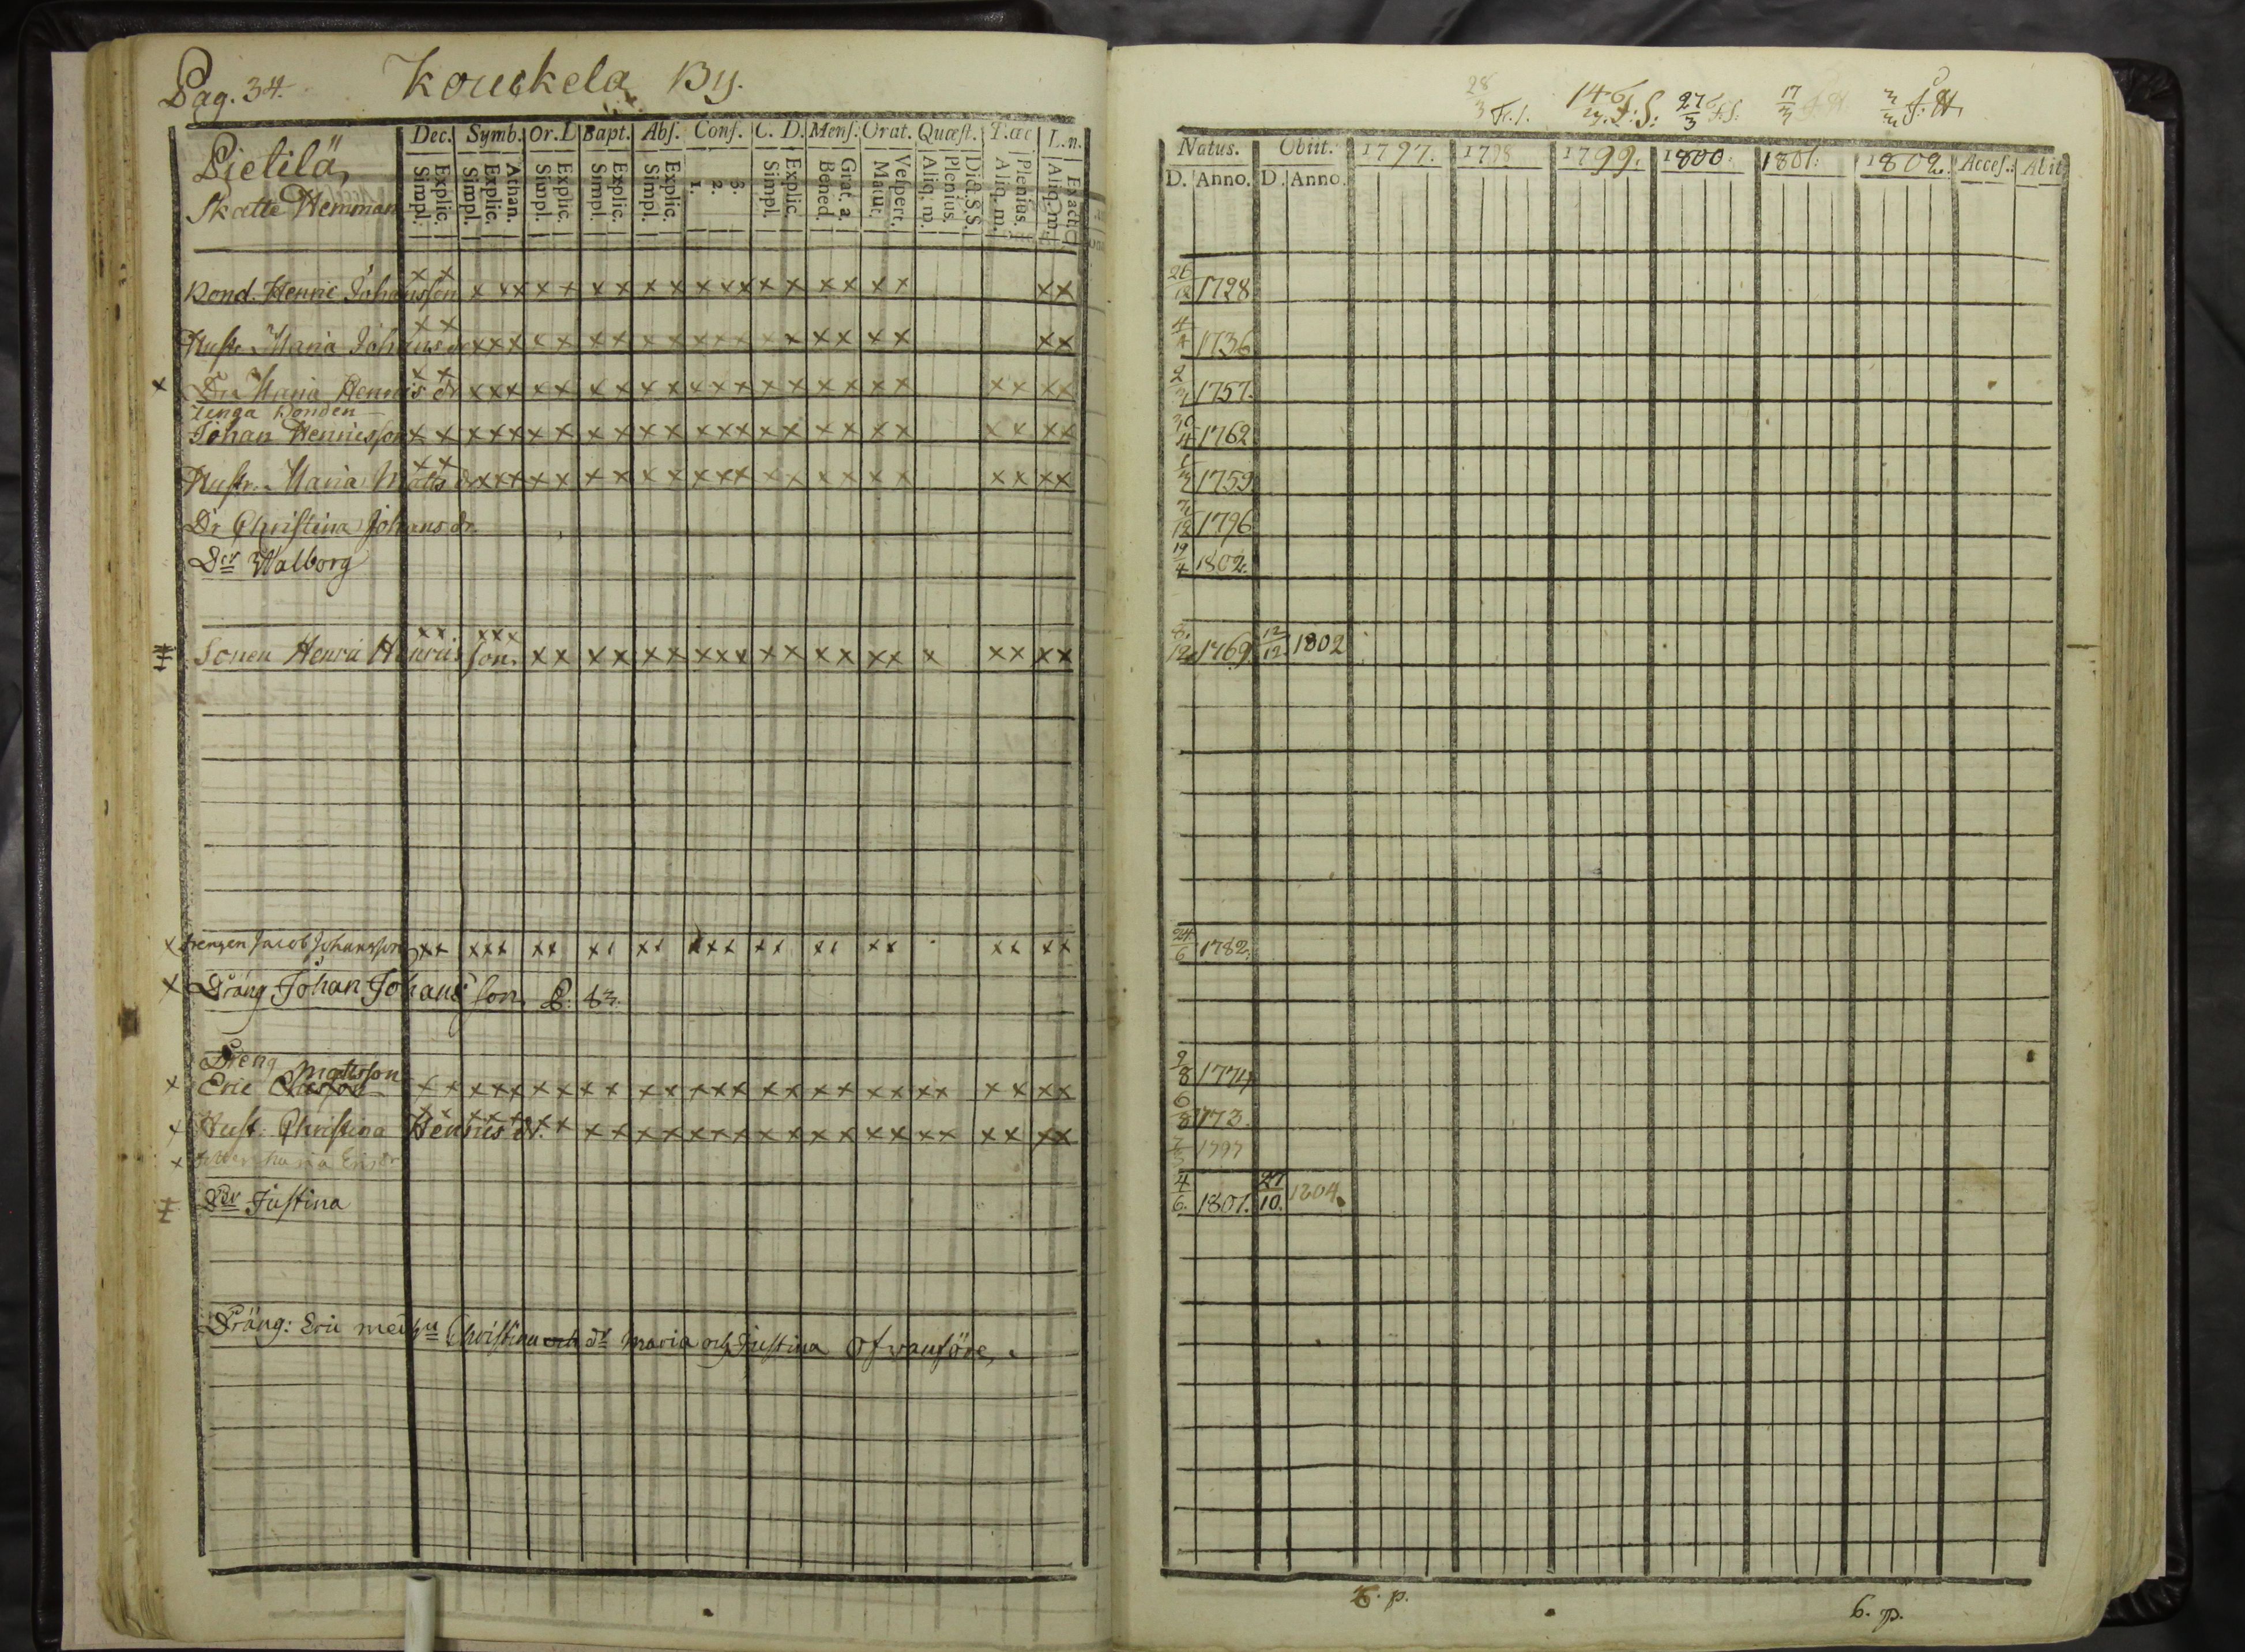 Pag. 34. Kouckela By.
Pietilä,
Skatte Hemman
Dec. Symb. Or. D Bapt. Abs. Conf. C. D. Mens. Orat. Quæst. T. œc. L. n.
Explic. Simpl. Athan. Explic. Simpl. Explic. Simpl. Explic. Simpl. Explic. Simpl. 3. 2. 1. Explic. Simpl. Grat. a. Bened. Vespert. Matut. Dict. S.S. Plenius. Aliq. m. Plenius. Aliq. m. Exacte Aliq. m.
Bond. Henric Johansson x x x x x x x x x x x x x x x x x x x x x x x
Hustr. Maria Johans dr x x x x x x x x x x x x x x x x x x x x x x
x Dr Maria Henrics dr x x x x x x x x x x x x x x x x x x x x x x x x
Unga Bonden
Johan Henricsson x x x x x x x x x x x x x x x x x x x x x x x x
Hustr. Maria Matts dr x x x x x x x x x x x x x x x x x x x x x x x x
Dr Christina Johans dr.
Dr Walborg
Sonen Henric Henricsson. x x x x x x x x x x x x x x x x x x x x x x x x x
x Drengen Jacob Johansson x x x x x x x x x x x x x x x x x x x x x x x x
x Dräng Johan Johansson P. 83.
Dreng Mattsson
x Eric x x x x x x x x x x x x x x x x x x x x x x x x x x
x Hust. Christina Henrics dr. x x x x x x x x x x x x x x x x x x x x x x x x x x
x Dotter Maria Ericsdr
Dr Justina
Dräng: Eric med hu Christina och dr Maria och Justina Ofvanföre,
28/3 F. S. 14/3 F: S: 27/3 F. S: 17/3 J. H. 3/3 J. H.
Natus. Obiit. 1797. 1798 1799. 1800. 1801. 1802. Acces. Abiit
D. Anno. D. Anno.
26/12 1728
4/4 1736
2/3 1757.
30/4 1762
1759
1796
19/4 1802.
8/12 1769 12/12 1802
24/6 1782.
9/8 1774
6/8 1773.
1797
4/6. 1801. 27/10. 1804.
6. p. 6. p.